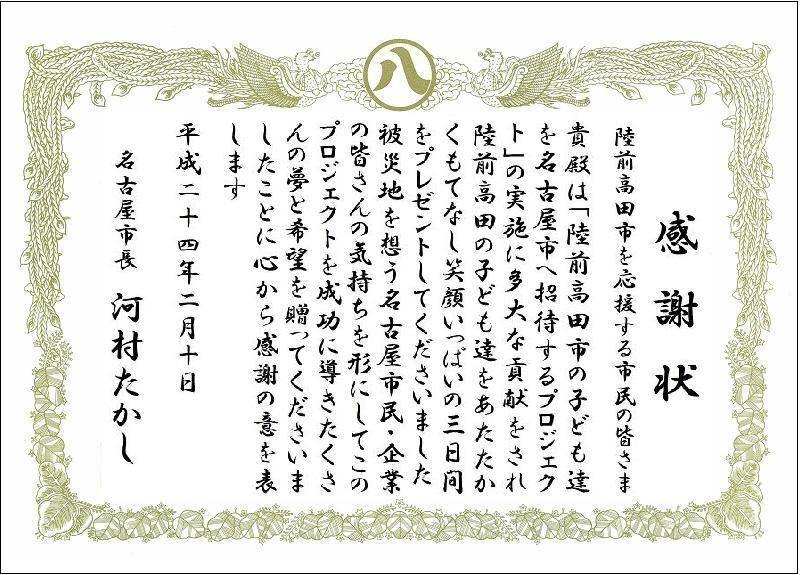 八
感謝状
陸前高田市を応援する市民の皆さま
貴殿は「陸前高田市の子ども達
を名古屋市へ招待するプロジェク
ト」の実施に多大な貢献をされ
陸前高田の子ども達をあたたか
くもてなし笑顔いっぱいの三日間
をプレゼントしてくださいました
被災地を想う名古屋市民・企業
の皆さんの気持ちを形にしてこの
プロジェクトを成功に導きたくさ
んの夢と希望を贈ってくださいま
したことに心から感謝の意を表
します
平成二十四年二月十日
名古屋市長 河村たかし